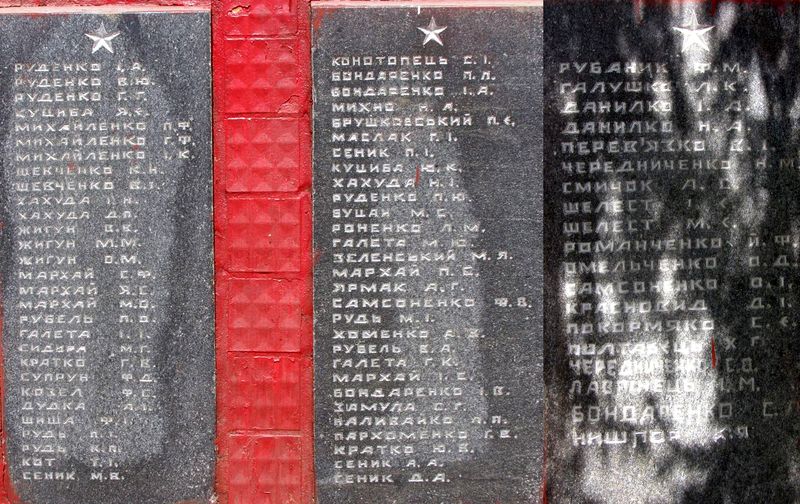 РУДЕНКО І.А.
РУДЕНКО В.Ю.
РУДЕНКО Г.Г.
КУЦИБА Я.Є.
МИХАЙЛЕНКО П.Ф.
МИХАЙЛЕНКО Г.Ф.
МИХАЙЛЕНКО І.К.
ШЕВЧЕНКО К.Н.
ШЕВЧЕНКО В.І.
ХАХУДА І.Н.
ХАХУДА Д.П.
ЖИГУН В.Є.
ЖИГУН М.М.
ЖИГУН О.М.
МАРХАЙ С.Ф.
МАРХАЙ Я.С.
МАРХАЙ М.О.
РУБЕЛЬ П.О.
ГАЛЕТА І.І.
СИДЫРА М.Г.
КРАТКО Г.В.
СУПРУН Ф.Д.
КОЗЕЛ Ф.С.
ДУДКА А.І.
ШИША Ф.І.
РУДЬ П.І.
РУДЬ К.П.
КОТ Т.І.
СЕНИК М.В.
КОНОТОПЕЦЬ С.І.
БОНДАРЕНКО П.Л.
БОНДАРЕНКО І.А.
МИХНО Н.А.
БРУШКОВСЬКИЙ П.Є.
МАСЛАК Г.І.
СЕНИК П.І.
КУЦИБА Ю.К.
ХАХУДА Н.І.
РУДЕНКО П.Ю.
БУЦАЙ М.С.
РОНЕНКО Л.М.
ГАЛЕТА М.Ю.
ЗЕЛЕНСЬКИЙ М.Я.
МАРХАЙ П.С.
ЯРМАК А.Г.
САМСОНЕНКО Ф.В.
РУДЬ М.І.
ХОМЕНКО А.В.
РУБЕЛЬ В.А.
ГАЛЕТА Г.К.
МАРХАЙ І.Є.
БОНДАРЕНКО І.В.
ЗАМУЛА С.Г.
НАЛИВАЙКО А.П.
ПАРХОМЕНКО Г.В.
КРАТКО Ю.В.
СЕНИК А.А.
СЕНИК Д.А.
РУБАНИК Ф.М.
ГАЛУШКО Л.К.
ДАНИЛКО І.Д.
ДАНИЛКО Н.А.
ПЕРЕВ'ЯЗКО В.І.
ЧЕРЕДНИЧЕНКО Н.М.
СМИЧОК А.О.
ШЕЛЕСТ І.
ШЕЛЕСТ М.
РОМАНЧЕНКО Й.Ф.
ОМЕЛЬЧЕНКО О.Д.
САМСОНЕНКО О.І.
КРАСНОВИД Д.І.
ПОКОРМЯКО С.Є.
ПОЛТАВЕЦЬ Х.Г.
ЧЕРЕДНИЧЕНКО С.В.
ЛАВРОНЕЦЬ І.М.
БОНДАРЕНКО С.
НИШПОР К.Я